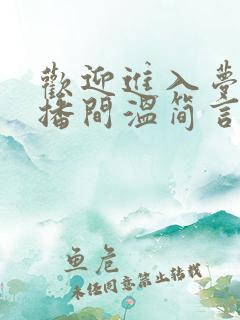 歡迎進入夢
播間溫简言
鱼危
未经同意禁止转载